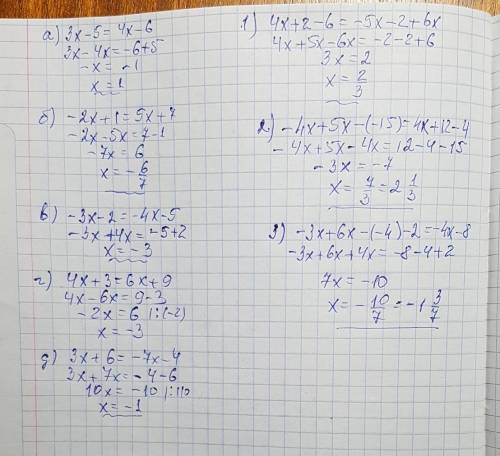 а) 3x-5=4x-6
3x-4x=-6+5
-x=-1
x=1
б) -2x+1=5x+7
-2x-5x=7-1
-7x=6
x=-6/7
в) -3x-2=-4x-5
-3x+4x=-5+2
x=-3
г) 4x+3=6x+9
4x-6x=9-3
-2x=6 |:(-2)
x=-3
д) 3x+6=-7x-4
3x+7x=-4-6
10x=-10 |:10
x=-1
1) 4x+2-6=-5x-2+6x
4x+5x-6x=-2-2+6
3x=2
x=2/3
2) -4x+5x-(-15)=4x+12-4
-4x+5x-4x=12-4-15
-3x=-7
x=7/3=2 1/3
3) -3x+6x-(-4)-2=-4x-8
-3x+6x+4x=-8-4+2
7x=-10
x=-10/7=-1 3/7